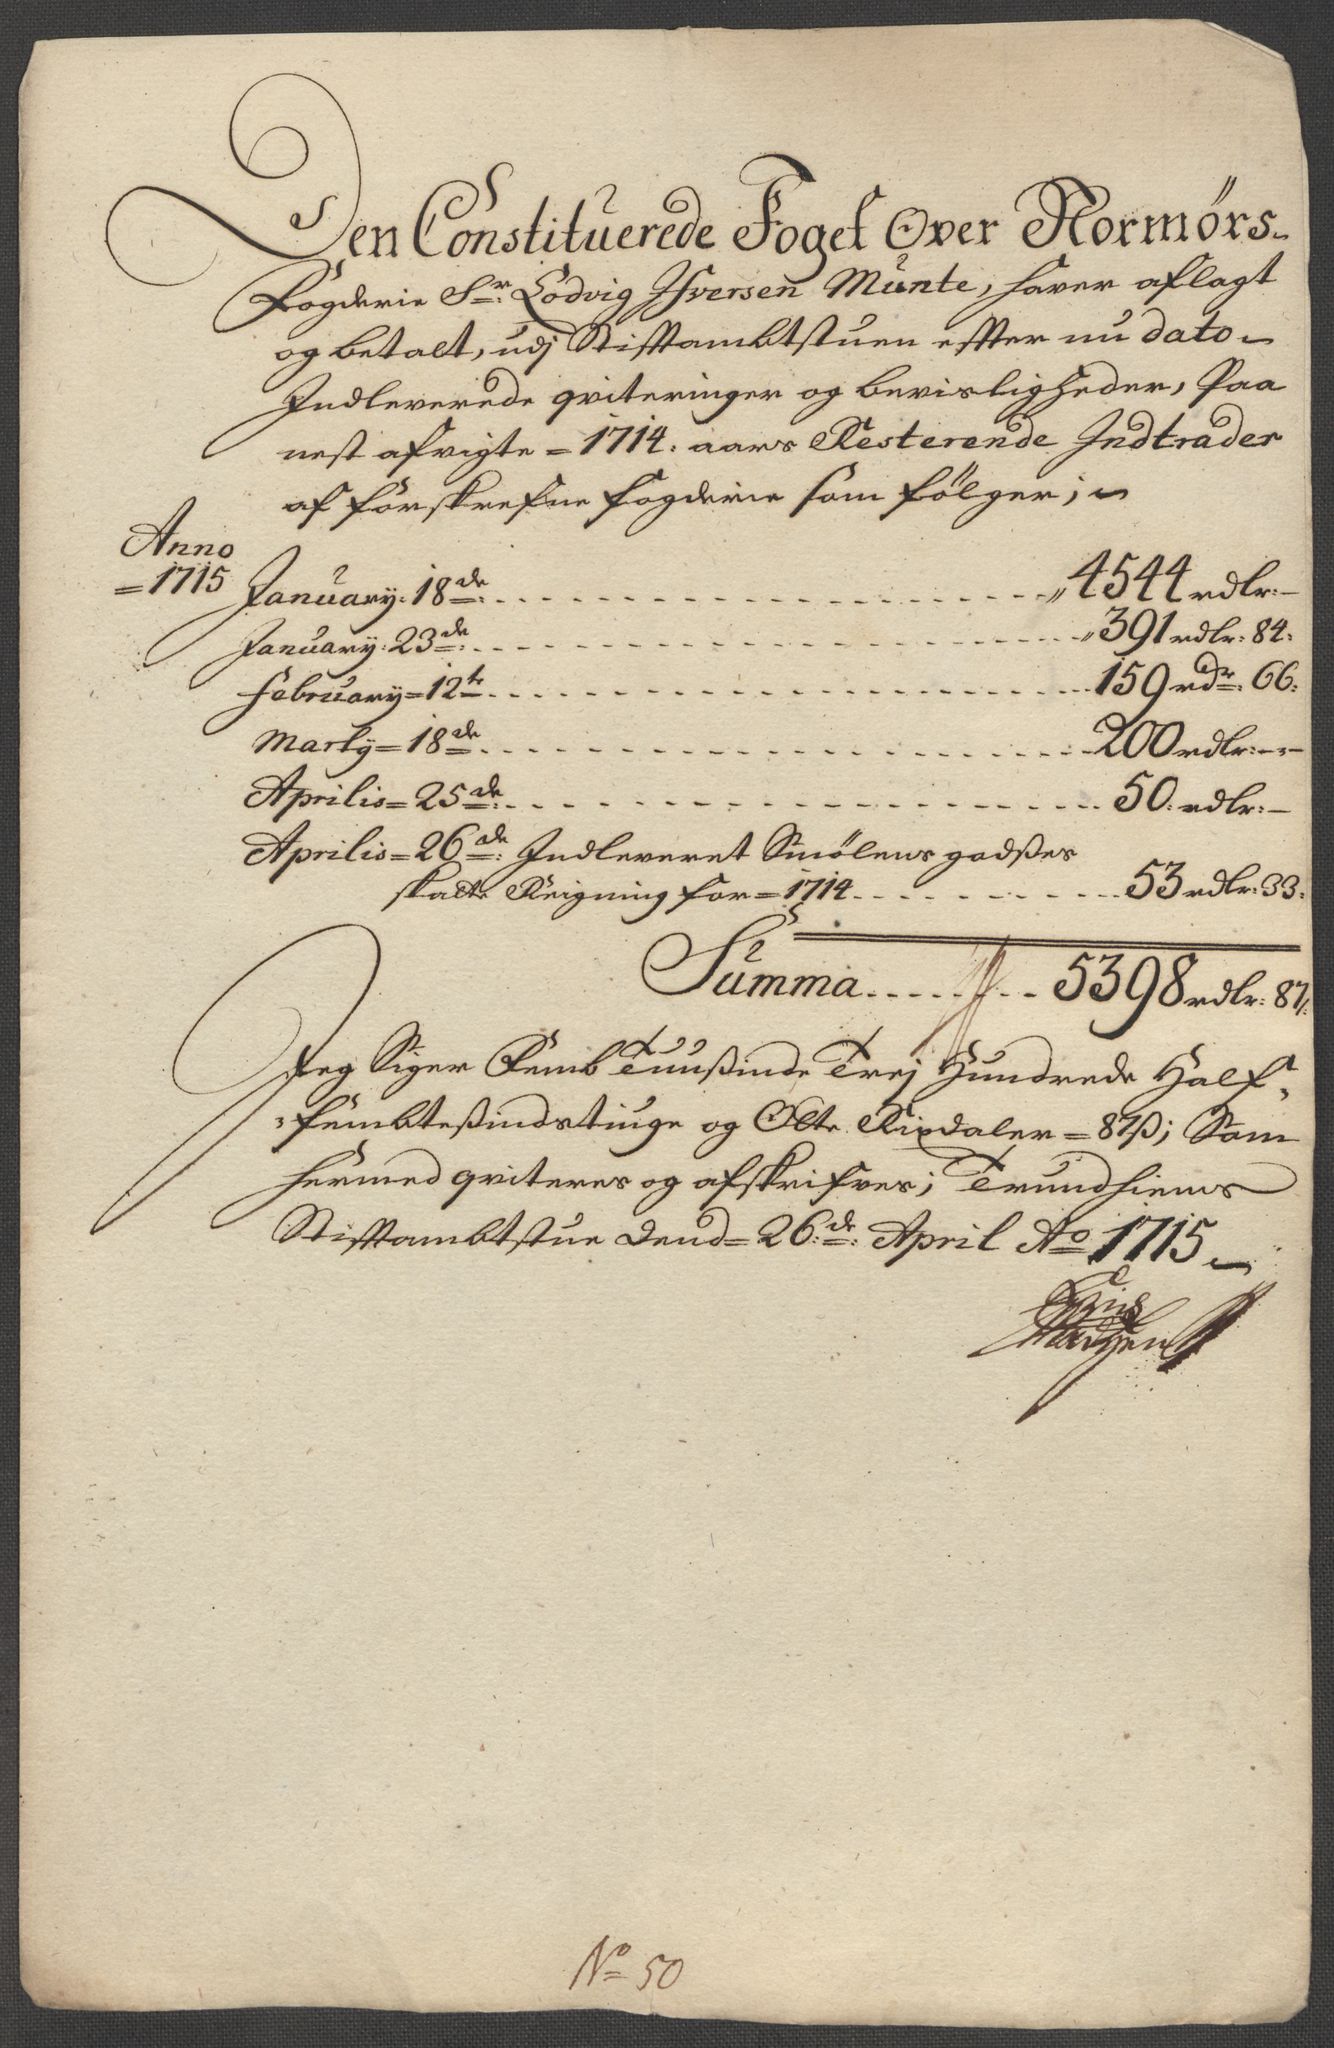 Den Constituerede Foget Over Normørs
Fogderie Sr: Lodvig Ifversen Munte, haver aflagt
og betalt, udj Stifftambtstuen effter nu dato
Indleverede qviteringer og bevisligheder, Paa
nest afvigte = 1714. aars Resterende Indtrader
af forskrefne fogderie som følger;
Anno
= 1715
January. 18de: 4544 rdlr:
January: 23de: 391 rdlr: 84:
February = 12te 159 rdr: 66:
Marty = 18de 200 rdlr:
Aprilis = 25de: 50: rdlr:
Aprilis = 26de: Indleveret Smølens godses
skatte Reigning for = 1714 53 rdlr: 33:
Summa 5398 rdlr: 87
Jeg Siger Femb Tuusinde Trej Hundrede Half-
fembtesindstiuge og Otte Rixdaler = 87 s; Som
hermed qviteres og afskrifves; Trundhiems
Stifftambtstue Dend = 26:de: April Ao 1715
Madtzen
No 50